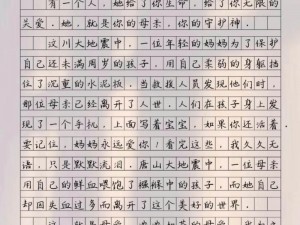 有一个人，她给了你生命，给了你无限的
关爱，她，就是你的母亲，你的守护神。
这川大地震中，一位年轻的妈妈为了保护
自己还未满周岁的孩子，用自己柔弱的身躯挡
住了沉重的水泥板，当救援人员发现他们时，
那位母亲已经离开了人世，人们在孩子身上发
现了一个手机，上面写着宝宝，如果你还活着，
要记住，妈妈永远爱你。看完这些，我久久无
语，只是默默流泪。唐山大地震中，一位母亲
用自己的鲜血喂饱了襁褓中的孩子，而她自己
却因失血过多而离开了这个美好的世界。